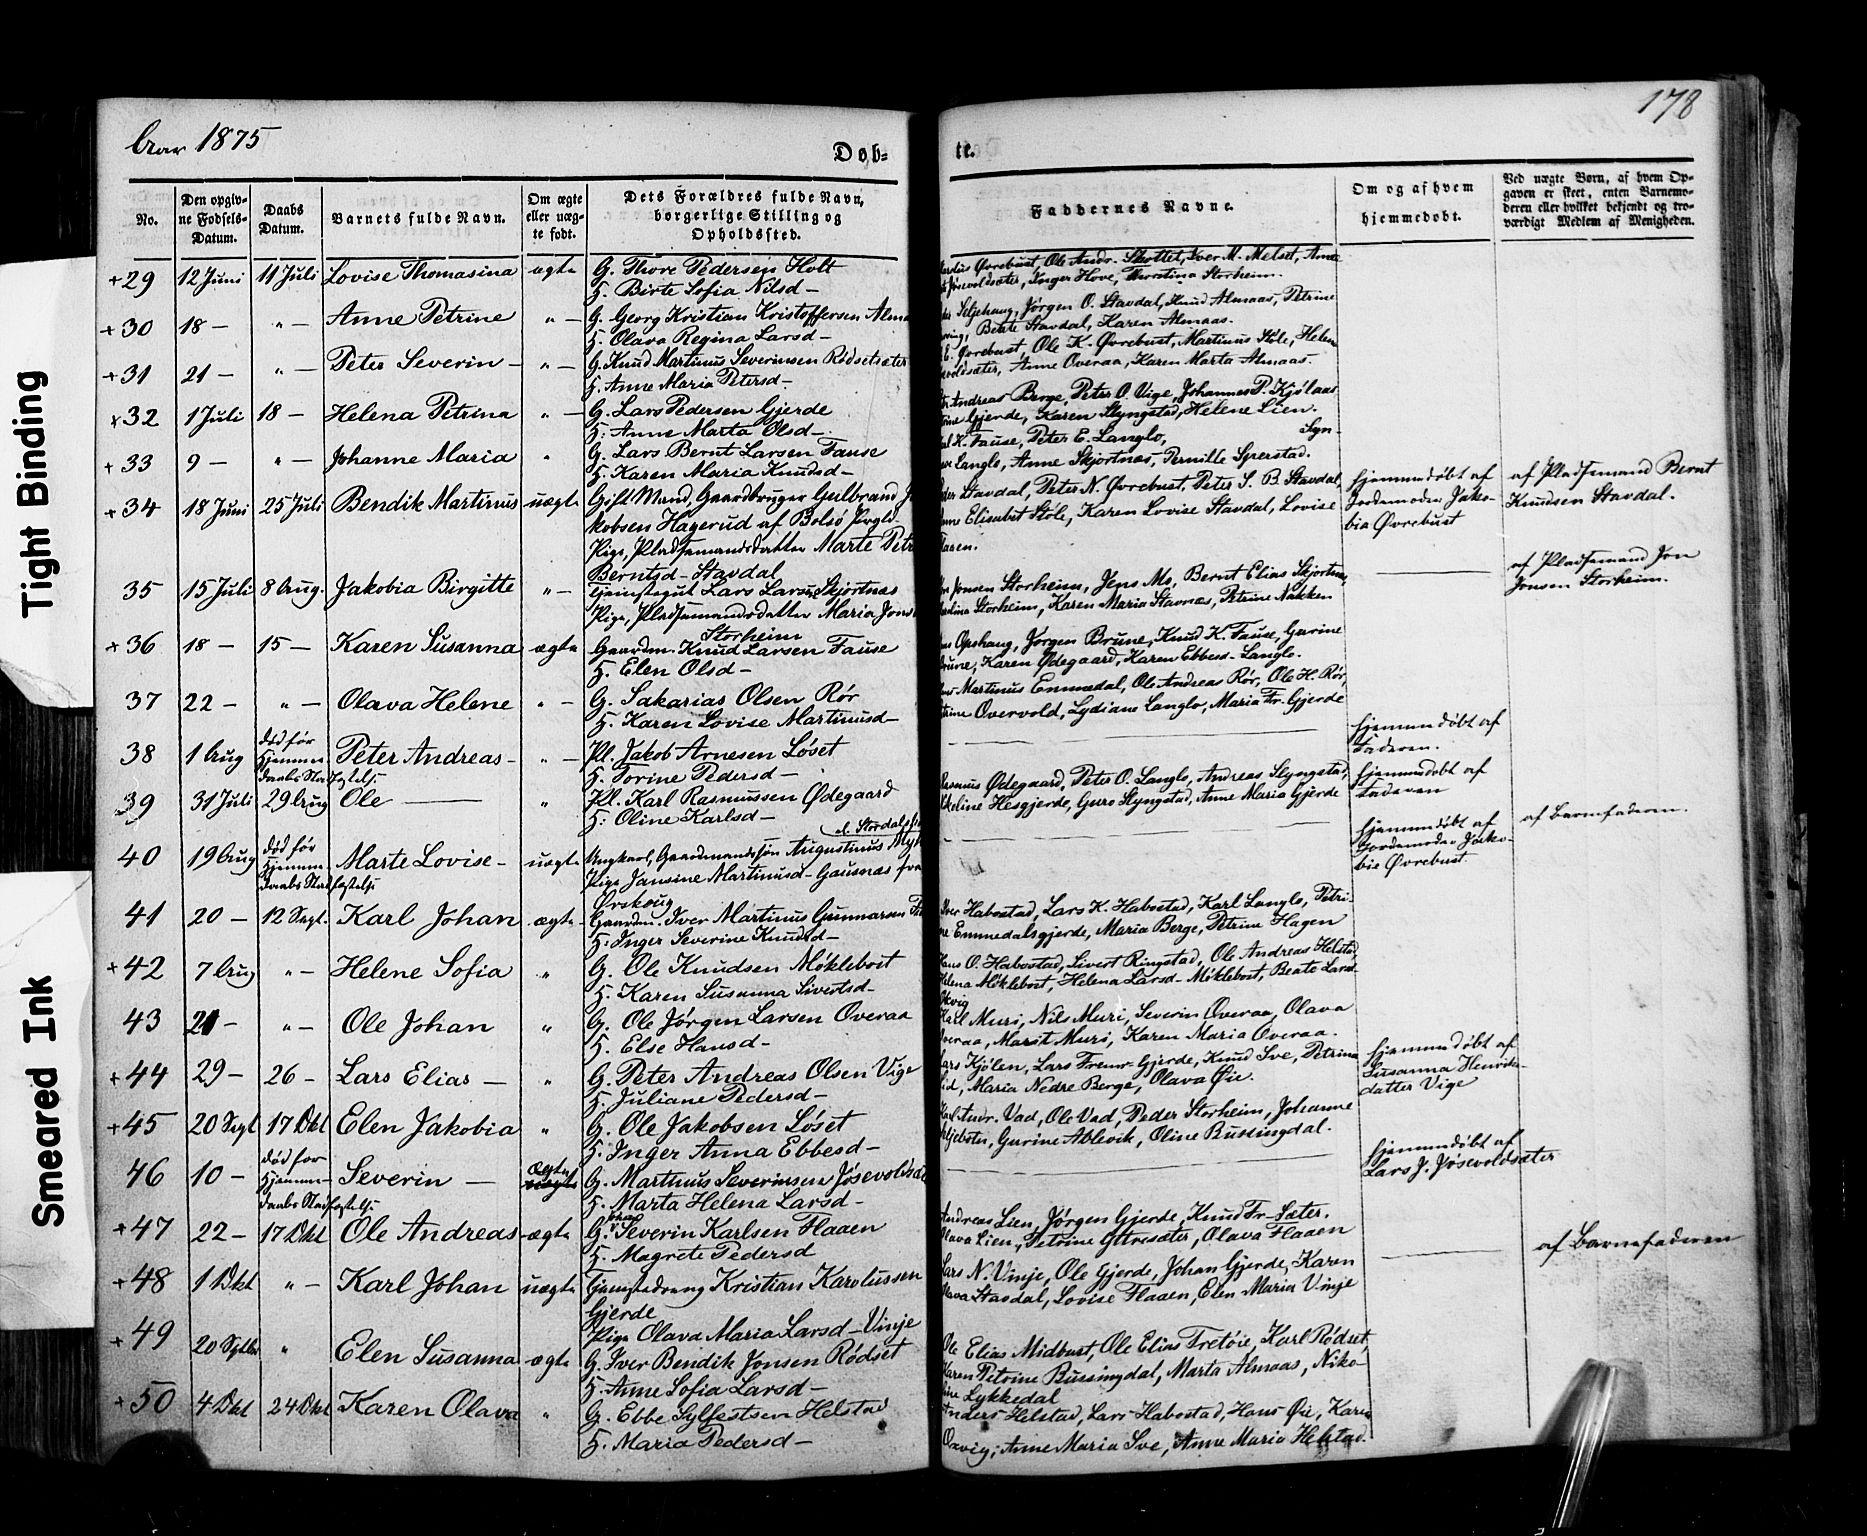 178
Aar 1875
Døb=
te.
No.
Den opgiv-
ne Fødsels-
Datum.
Daabs
Datum.
Barnets fulde Navn.
Om ægte
eller uæg-
te født.
Dets Forældres fulde Navn,
borgerlige Stilling og
Opholdssted.
Faddernes Navne.
Om og af hvem
hjemmedøbt.
Ved uægte Børn, af hvem Op-
gaven er skeet, enten Barnemo-
deren eller hvilket bekjendt og tro-
værdigt Medlem af Menigheden.
+29 12 Juni 11 Juli Lovise Thomasina ægte G. Thore Pedersen Holt
H. Birte Sofia Nilsd-
Øvrebust, Ole Andr. Skottet, Iver M. Melset, Anne
Jøsevoldsæter, Inger Hove, Thorstina Storheim.
+30 18 - " - Anne Petrine " - G. Georg Kristian Kristoffersen
H. Olava Regina Larsd-
Seljehaug, Jørgen O. Stavdal, Knud Almaas, Petrine
Beate Stavdal, Karen Almaas.
+31 21 - " - Peter Severin - " - G. Knud Martinus Severinsen Rødsetsæter
H. Anne Maria Petersd-
Øvrebust, Ole K. Øvrebust, Martinus Støle, Helene
Anne Overaa, Karen Marta Almaas.
+32 1 Juli 18 - Helena Petrina " - G. Lars Pedersen Gjerde
H. Anne Marta Olsd-
Andreas Berge, Peter O. Vige, Johannes P. Kjølaas
Gjerde, Karen Slyngstad, Helene Lien.
+33 9 - " - Johanne Maria " G. Lars Bernt Larsen Fause
H. Karen Maria Knudsd-
K. Fause, Peter E. Langlo,
Langlo, Anne Skjortnæs, Pernille Sperstad.
+34 18 Juni 25 Juli Bendik Martinus uægte Gift Mand, Gaardbruger Gulbrand
kobsen Hagerud af Bolsø Prgld.
Pige, Pladsemandsdatter Marte
Berntsd- Stavdal
Stavdal, Peter N. Øvrebust, Peter S. B. Stavdal,
Elisabet Støle, Karen Lovise Stavdal, Lovise
hjemmedøbt af
Jordemoder Jako-
bia Øvrebust
af Pladsemand Bernt
Knudsen Stavdal.
35 15 Juli 8 Aug. Jakobia Birgitte " - Tjenestegut Lars Larsen Skjortnæs
Pige, Pladsemandsdatter Maria
Storheim
Jonsen Storheim, Jens Mo, Bernt Elias Skjortnæs,
Storheim, Karen Maria Stavnæs, Petrine Nakken
af Pladsemand Jon
Jonsen Storheim.
+36 18 - 15 - Karen Susanna ægte Gaardm. Knud Larsen Fause
H. Elen Olsd-
Opshaug, Jørgen Brune, Knud K. Fause, Gurine
Brune, Karen Ødegaard, Karen Ebbesd- Langlo.
37 22 - " - Olava Helene " - G. Sakarias Olsen Rør
H. Karen Lovise Martinusd-
Martinus Emmedal, Ole Andreas Rør, Ole H. Rør,
Overvold, Lydiane Langlo, Maria Fr. Gjerde
38 1 Aug død før
Hjemme-
daabs Stadfæstelse Peter Andreas - " - Pl. Jakob Arnesen Løset
H. Torine Pedersd-
hjemmedøbt af
Faderen.
39 31 Juli 29 Aug Ole " Pl. Karl Rasmussen Ødegaard
H. Oline Karlsd-
Rasmus Ødegaard, Peter O. Langlo, Andreas Slyngstad,
Hesgjerde, Guro Slyngstad, Anne Maria Gjerde
hjemmedøbt af
Faderen
40 19 Aug død før
Hjemme-
daabs Stadfæstelse Marte Lovise - uægte Ungkarl, Gaardmandssøn Augustinus
Pige Jansine Martinusd- Gausnæs fra
Ørskoug
hjemmedøbt af
Jordemoder Jako-
bia Øvrebust.
af Barnefaderen.
41 20 - 12 Sept. Karl Johan ægte Gaardm. Iver Martinus Gunnarsen
H. Inger Severine Knudsd-
Iver Habostad, Lars K. Habostad, Karl Langlo, Petri-
ne Emmedalsgjerde, Maria Berge, Petrine Hagen
+42 7 Aug " - Helene Sofia " G. Ole Knudsen Møklebost
H. Karen Susanna Sivertsd-
Hans O. Habostad, Sivert Ringstad, Ole Andreas Helstad,
Helena Møklebost, Helena Larsd- Møklebost, Beate Larsd-
43 21 - " - Ole Johan " G. Ole Jørgen Larsen Overaa
H. Else Hansd-
Karl Muri, Nils Muri, Severin Overaa, Olava
Overaa, Marit Muri, Karen Maria Overaa.
+44 29 - 26 - Lars Elias - " G. Peter Andreas Olsen Vige
H. Juliane Pedersd-
Lars Kjølen, Lars Gjerde, Knud Sve, Petrina
Maria Nedre Berge, Olava Øie.
hjemmedøbt af
Susanna Henriks-
datter Vige
+45 20 Sept 17 Okt Elen Jakobia " G. Ole Jakobsen Løset
H. Inger Anna Ebbesd-
Karl Andr. Vad, Ole Vad, Peder Storheim, Johanne
Gurine Ablevik, Oline Bussingdal.
46 10 - død før
Hjemme-
daabs Stadfæstelse Severin - Ægte uægte G. Martinus Severinsen
H. Marta Helena Larsd-
hjemmedøbt af
Lars J. Jøsevoldsæter
+47 22 - 17 Okt Ole Andreas - ægte G. Severin Karlsen Flaaen
H. Magrete Pedersd
Andreas Lien, Jørgen Gjerde, Knud Fr- Sæter.
Olava Lien, Petrine Ytresæter, Olava Flaaen
+48 1 Okt " - Karl Johan uægte Tjenestedreng Kristian Karolussen
Gjerde
Pige Olava Maria Larsd- Vinje
Lars N. Vinje, Ole Gjerde, Johan Gjerde, Karen
Olava Stavdal, Lovise Flaaen, Elen Maria Vinje
af Barnefaderen
+49 20 Septbr " Elen Susanna ægte G. Iver Bendik Jonsen Rødset
H. Anne Sofia Larsd-
Ole Elias Midbust, Ole Elias Fretøie, Karl Rødset,
Karen Petrine Bussingdal, Marta Almaas, Niko-
line Lykkedal
+50 4 Okt 24 Okt Karen Olava " G. Ebbe Sylfestsen Helstad
H. Maria Pedersd-
Anders Helstad, Lars Habostad, Hans Øie, Karen
Anne Maria Sve, Anne Maria Helstad.
Tight Binding
Smeared Ink